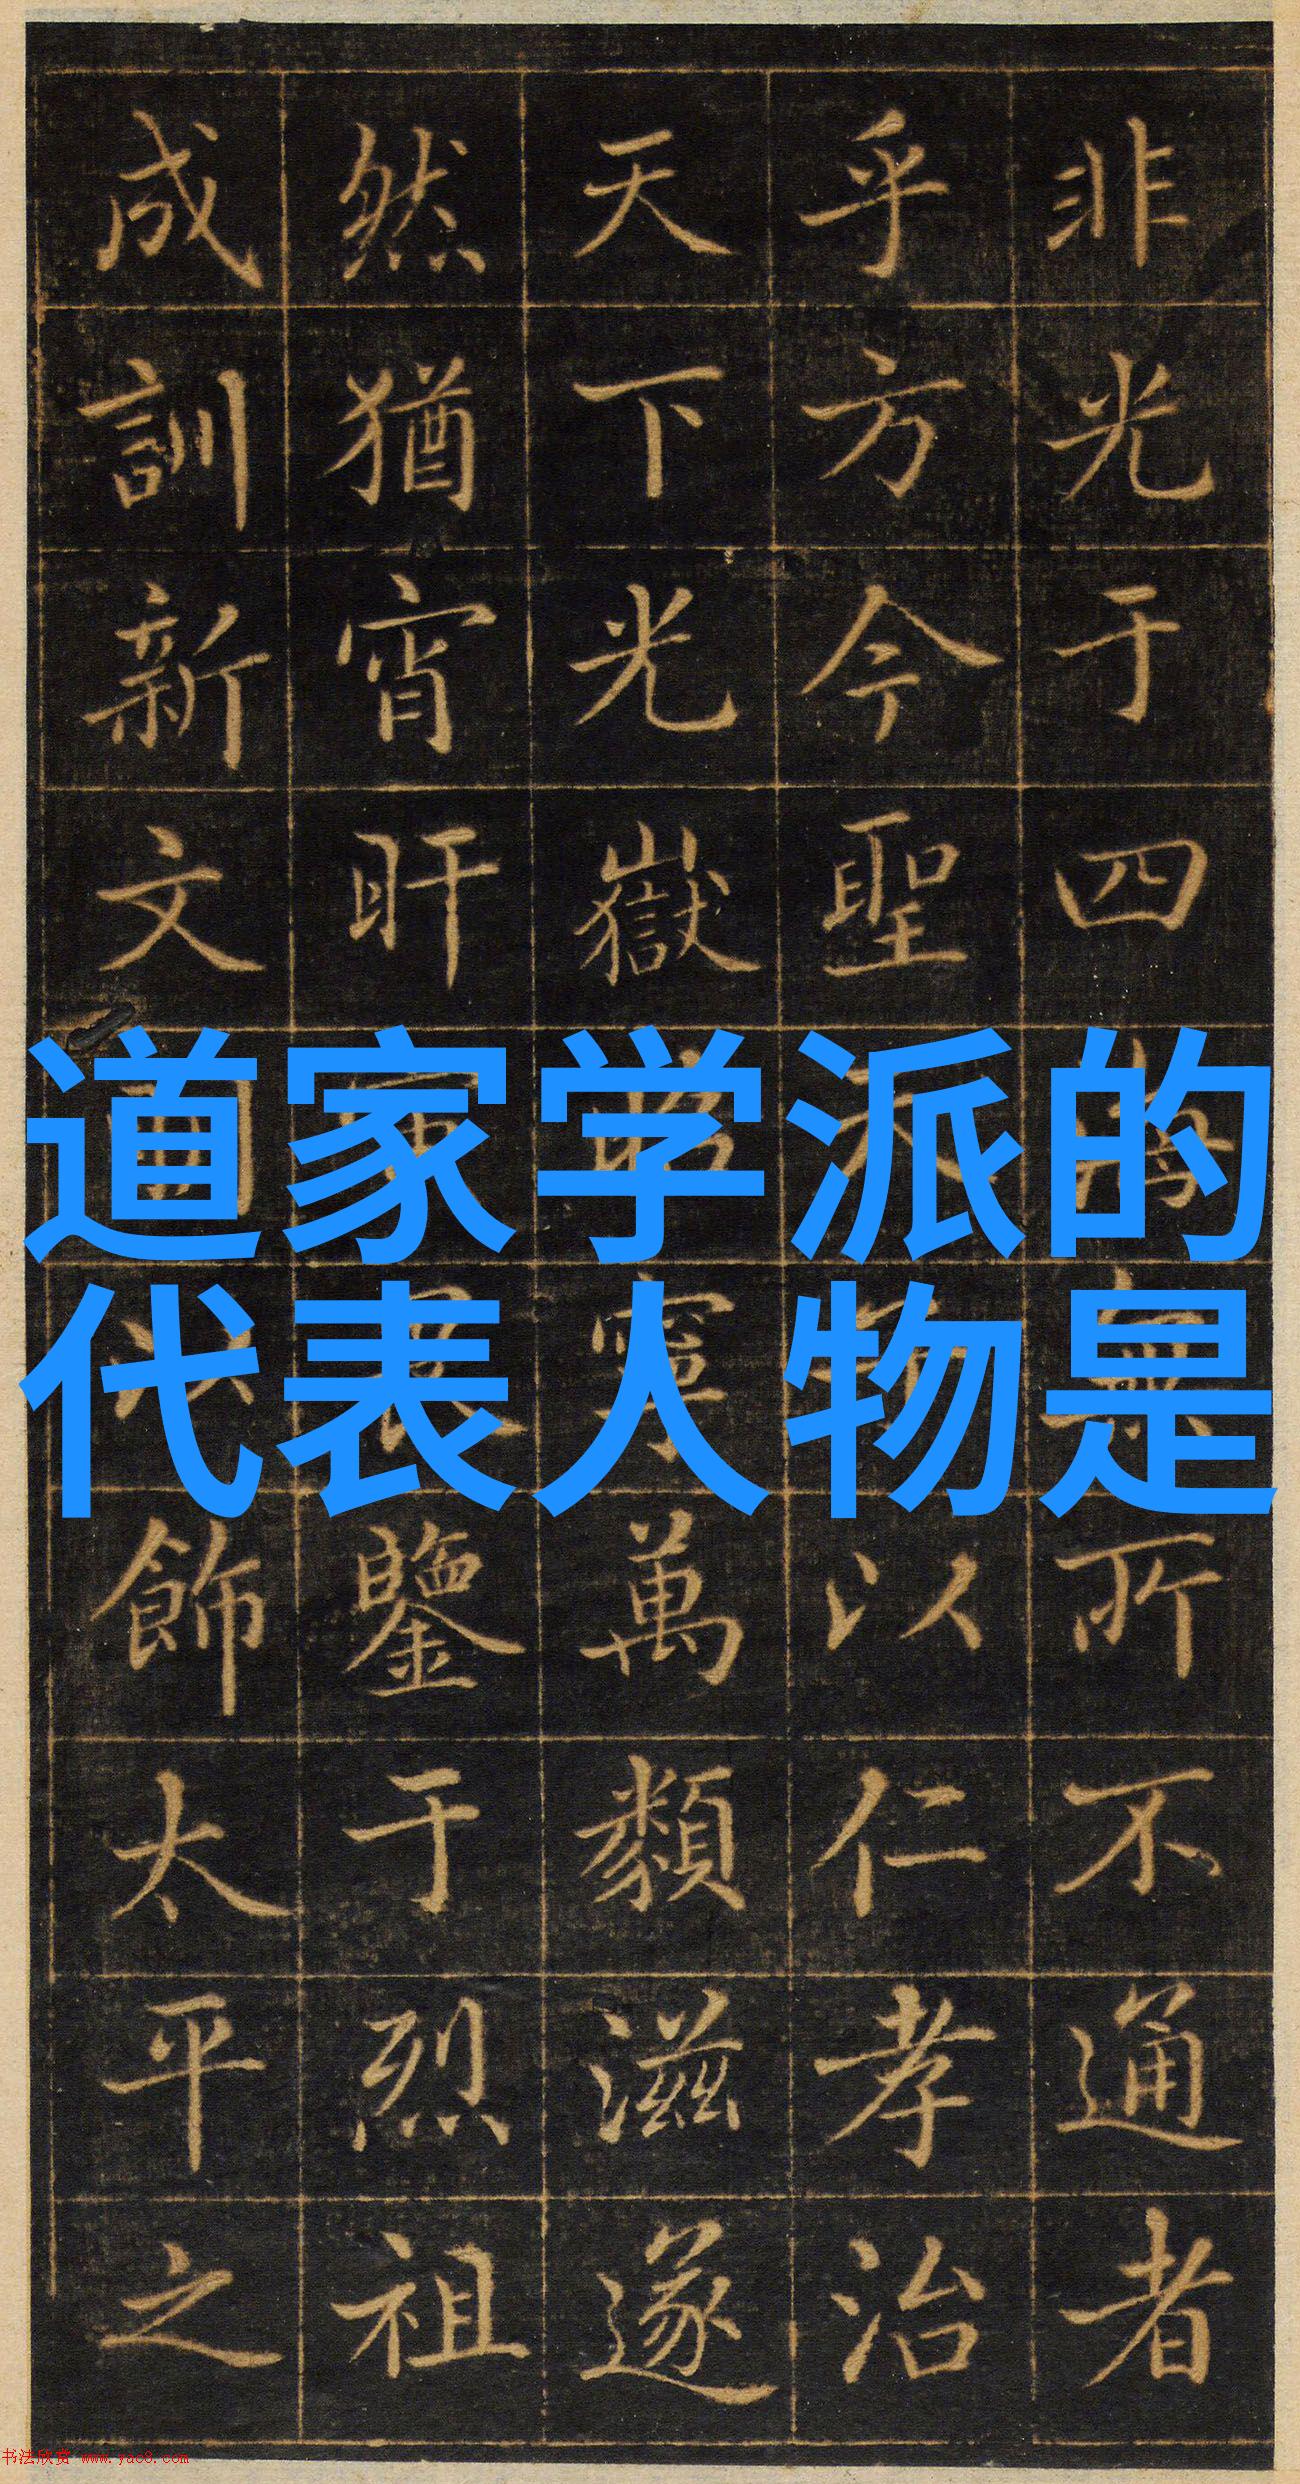 非光于四海無所不通者
乎方今聖天以仁孝治
天下光嶽昭寧萬類滋遂
然猶宵旰畏鑒于烈祖
成訓新文以飾太平之
道家学派的
代表人物是
书法欣赏 www.yac8.com